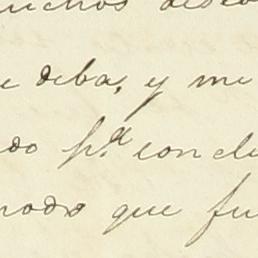 uchos deseo
e deba, y me
do p.ª conclu
modo que fu